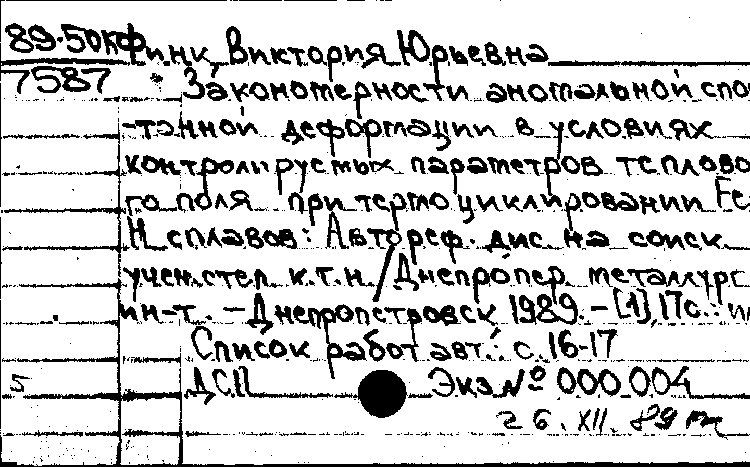 89-50КФ Финк, Виктория Юрьевна
7587 Закономерности аномальной спон
-танной деформации в условиях
контролируемых параметров теплово
го поля при термоциклировании Fe
Н сплавов: Автореф. дис на соиск
учен.степ. к.т.н / Днепропер. металлург
ин-т. – Днепропетровск 1989. – [1], 17с.: ил
Список работ авт.: с. 16-17
5 ДСП Экз № 000 004
26. XII. 89